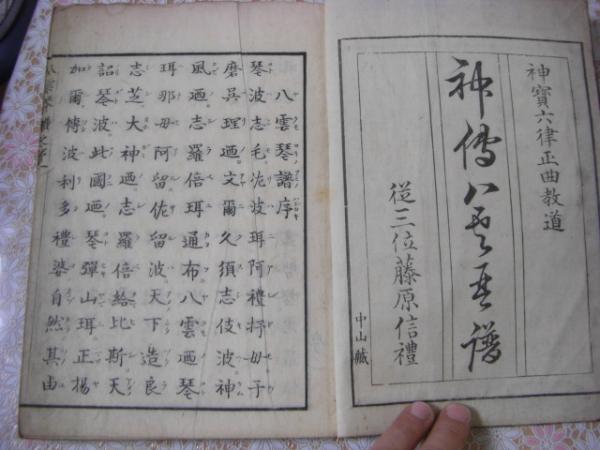 神寶六律正曲教道
神傳八雲琴譜
従三位藤原信禮
中山蔵
八雲琴譜序
琴波志毛佐波珥阿禮抒毋子
磨呉理廼文爾久須志伎波神
風廼志羅倍珥通布八雲廼琴
珥那毋阿留佐留波天下造良
志芝大神廼志羅倍給比斯天
詔琴波此國廼琴彈山珥正揚
加爾傳波利多禮婆自然其由